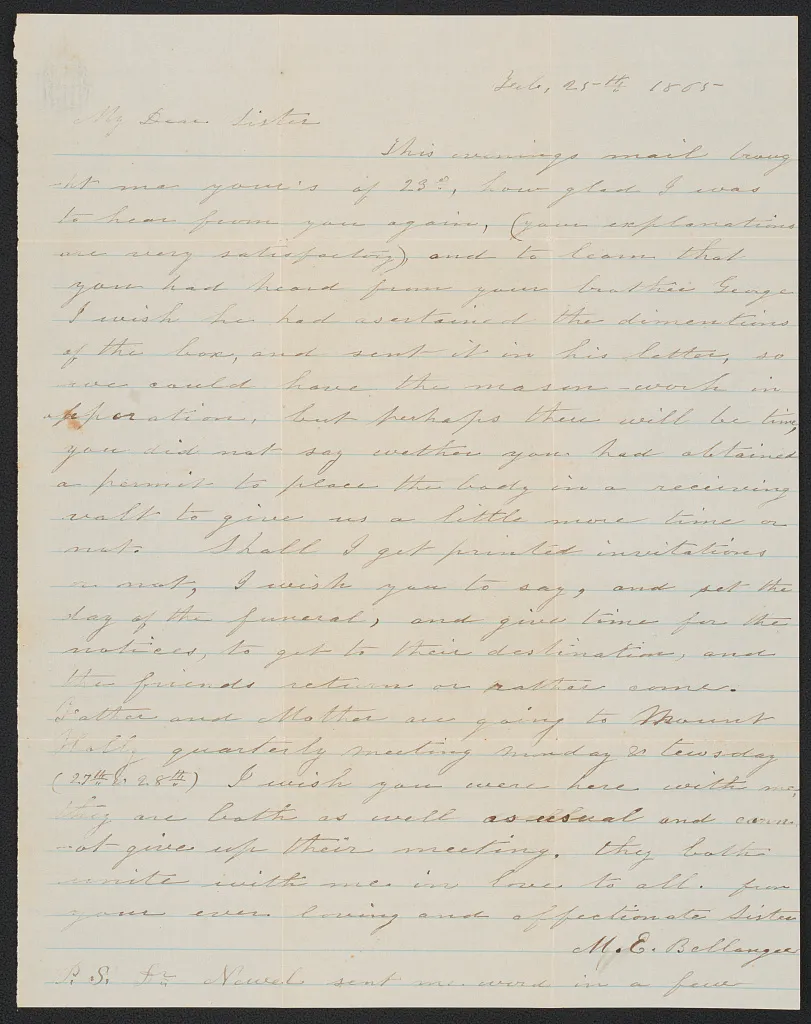 Feb, 25th 1865
My Dear Sister
This evenings mail broug
ht me your's of 23d, how glad I was
to hear from you again, (your explanations
are very satisfactory) and to learn that
you had heard from your brother George
I wish he had asertained the dimentions
of the box, and sent it in his letter, so
we could have the mason-work in
opperation, but perhaps there will be time,
you did not say wether you had obtained
a permit to place the body in a receiving
valt to give us a little more time or
not. Shall I get printed invitations
or not, I wish you to say, and set the
day of the funeral, and give time for the
notices, to get to their destination, and
the friends return or rather come.
Father and Mother are going to Mount
Holly quarterly meeting minday & tewsday
(27th & 28th) I wish you were here with me,
they are both as well as usual and cann
ot give up their meeting. they both
unite with me in love to all. from
your ever loving and affectionate Sister
M. E. Bellangee
P. S. Dr. Newel sent me word in a few